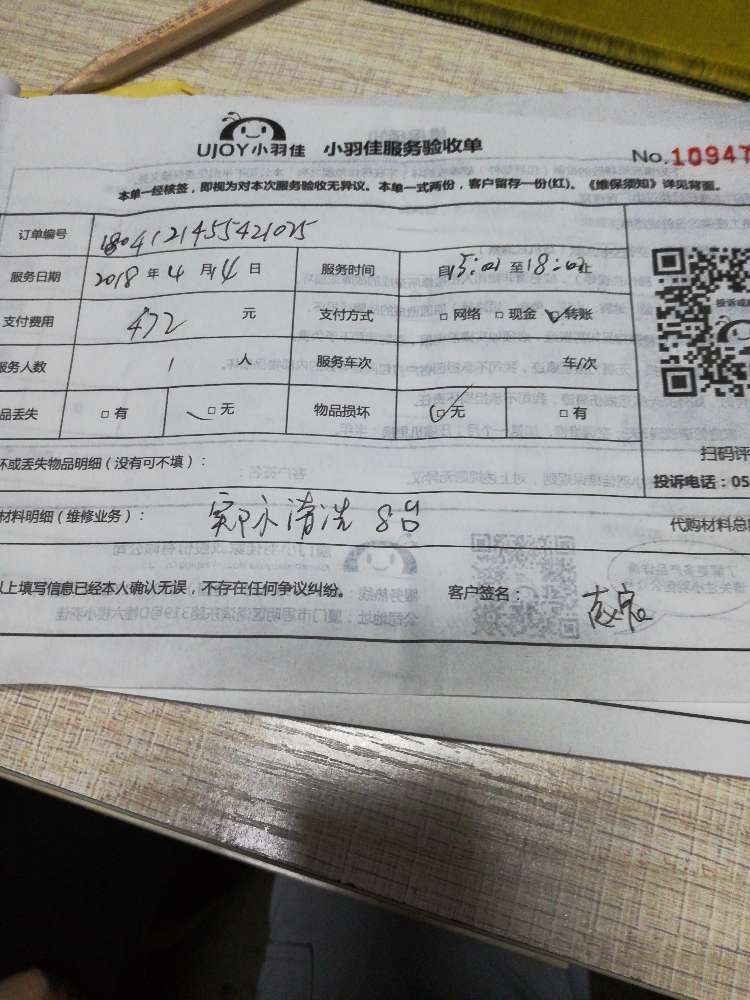 UJOY小羽佳 小羽佳服务验收单
No.10947
本单一经核签，即视为对本次服务验收无异议。本单一式两份，客户留存一份(红)。《维保须知》详见背面。
订单编号 1804121455421025
服务日期 2018 年 4 月 14 日 服务时间 自 15:00 至 18:00 止
支付费用 472 元 支付方式 □ 网络 □ 现金 □ 转账
服务人数 1 人 服务车次 车/次
品丢失 □ 有 □ 无 物品损坏 □ 无 □ 有
坏或丢失物品明细（没有可不填）：
扫码评
投诉电话：05
材料明细（维修业务）： 清洗 8台
代购材料总
以上填写信息已经本人确认无误，不存在任何争议纠纷。 客户签名：